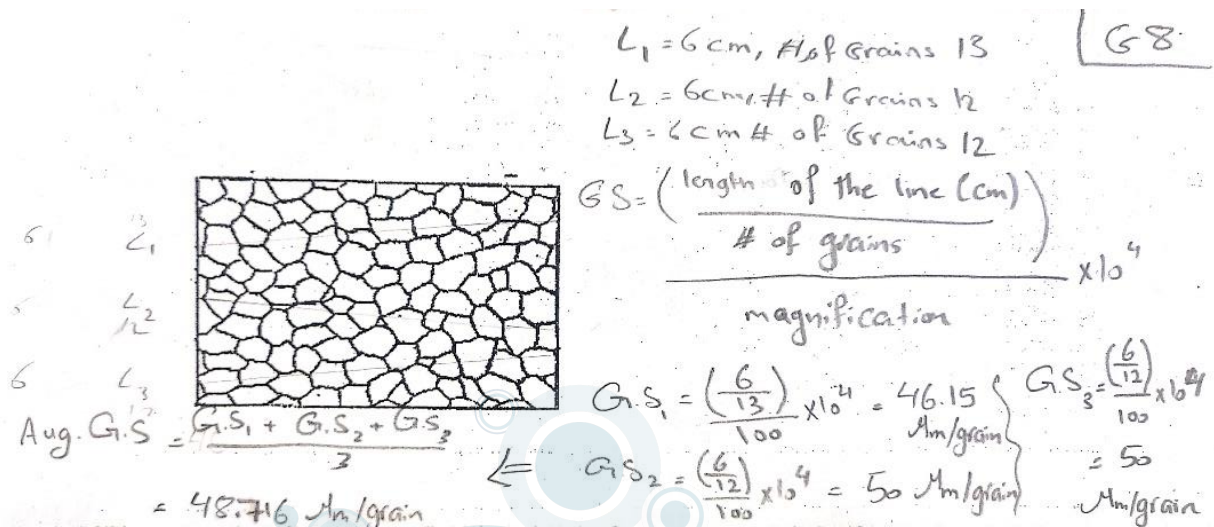 G8
L₁ = 6 cm, # of Grains 13
L₂ = 6cm, # of Grains 12
L₃ = 6 cm # of Grains 12
GS = ( length of the line (cm) / # of grains ) / magnification × 10⁴
6 L₁ 13
L₂ 12
6 L₃ 12
G.S₁ = (6/13)/100 × 10⁴ = 46.15 Mm/grain
GS₂ = (6/12)/100 × 10⁴ = 50 Mm/grain
GS₃ = (6/12)/100 × 10⁴ = 50 Mm/grain
⇐
Aug. G.S = G.S₁ + G.S₂ + G.S₃ / 3
= 48.716 Mm/grain